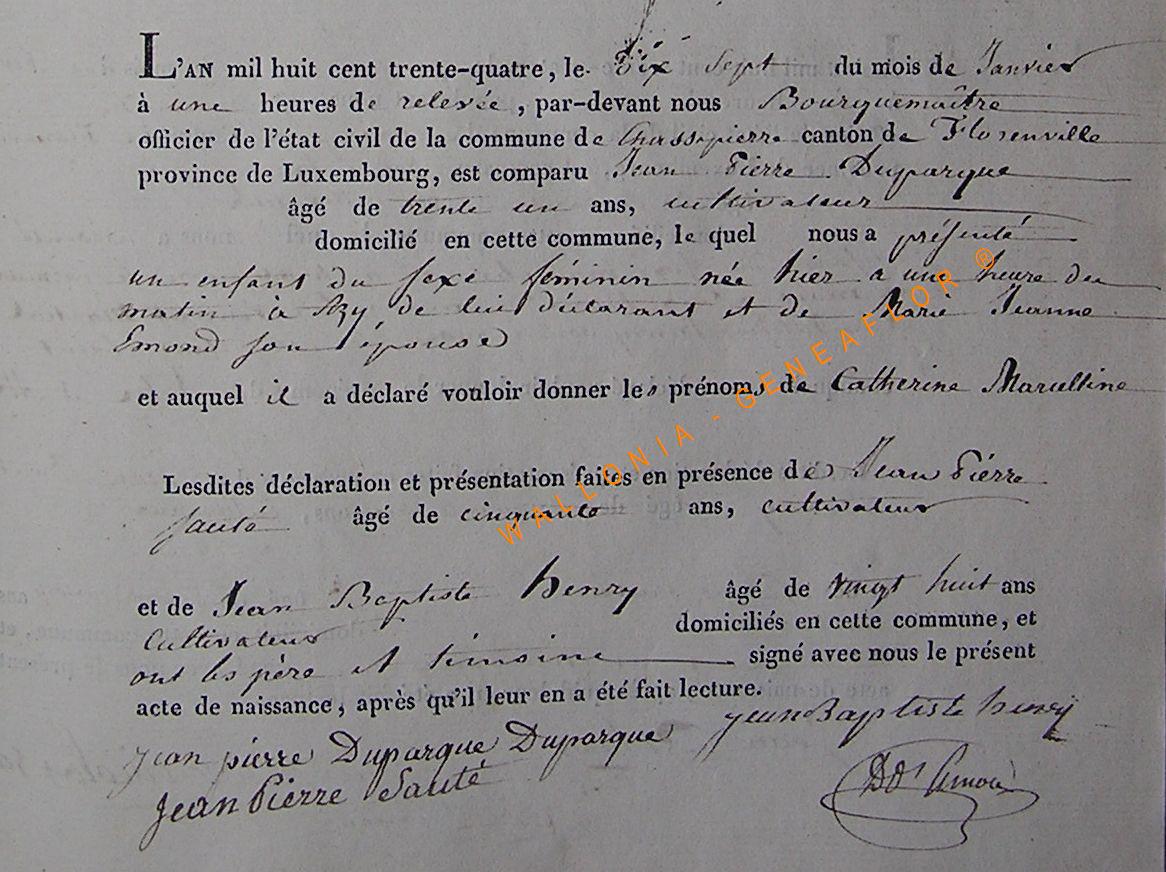 L'AN mil huit cent trente-quatre, le dix sept du mois de Janvier
à une heures de relevée, par-devant nous Bourquemaître
officier de l'état civil de la commune de Chassepierre canton de Florenville
province de Luxembourg, est comparu Jean Pierre Duparque
âgé de trente un ans, cultivateur
domicilié en cette commune, le quel nous a présenté
un enfant du sexe féminin née hier a une heure du
matin à Azy, de lui déclarant et de Marie Jeanne
Emond son épouse
et auquel il a déclaré vouloir donner les prénoms de Catherine Marcelline
Lesdites déclaration et présentation faites en présence de Jean Pierre
Sauté âgé de cinquante ans, cultivateur
et de Jean Baptiste henry âgé de vingt huit ans
Cultivateur domiciliés en cette commune, et
ont les père et témoins signé avec nous le présent
acte de naissance, après qu'il leur en a été fait lecture.
jean pierre Duparque Duparque jean Baptiste henry
Jean Pierre Sauté
WALLONIA - GENEAFLOR ®